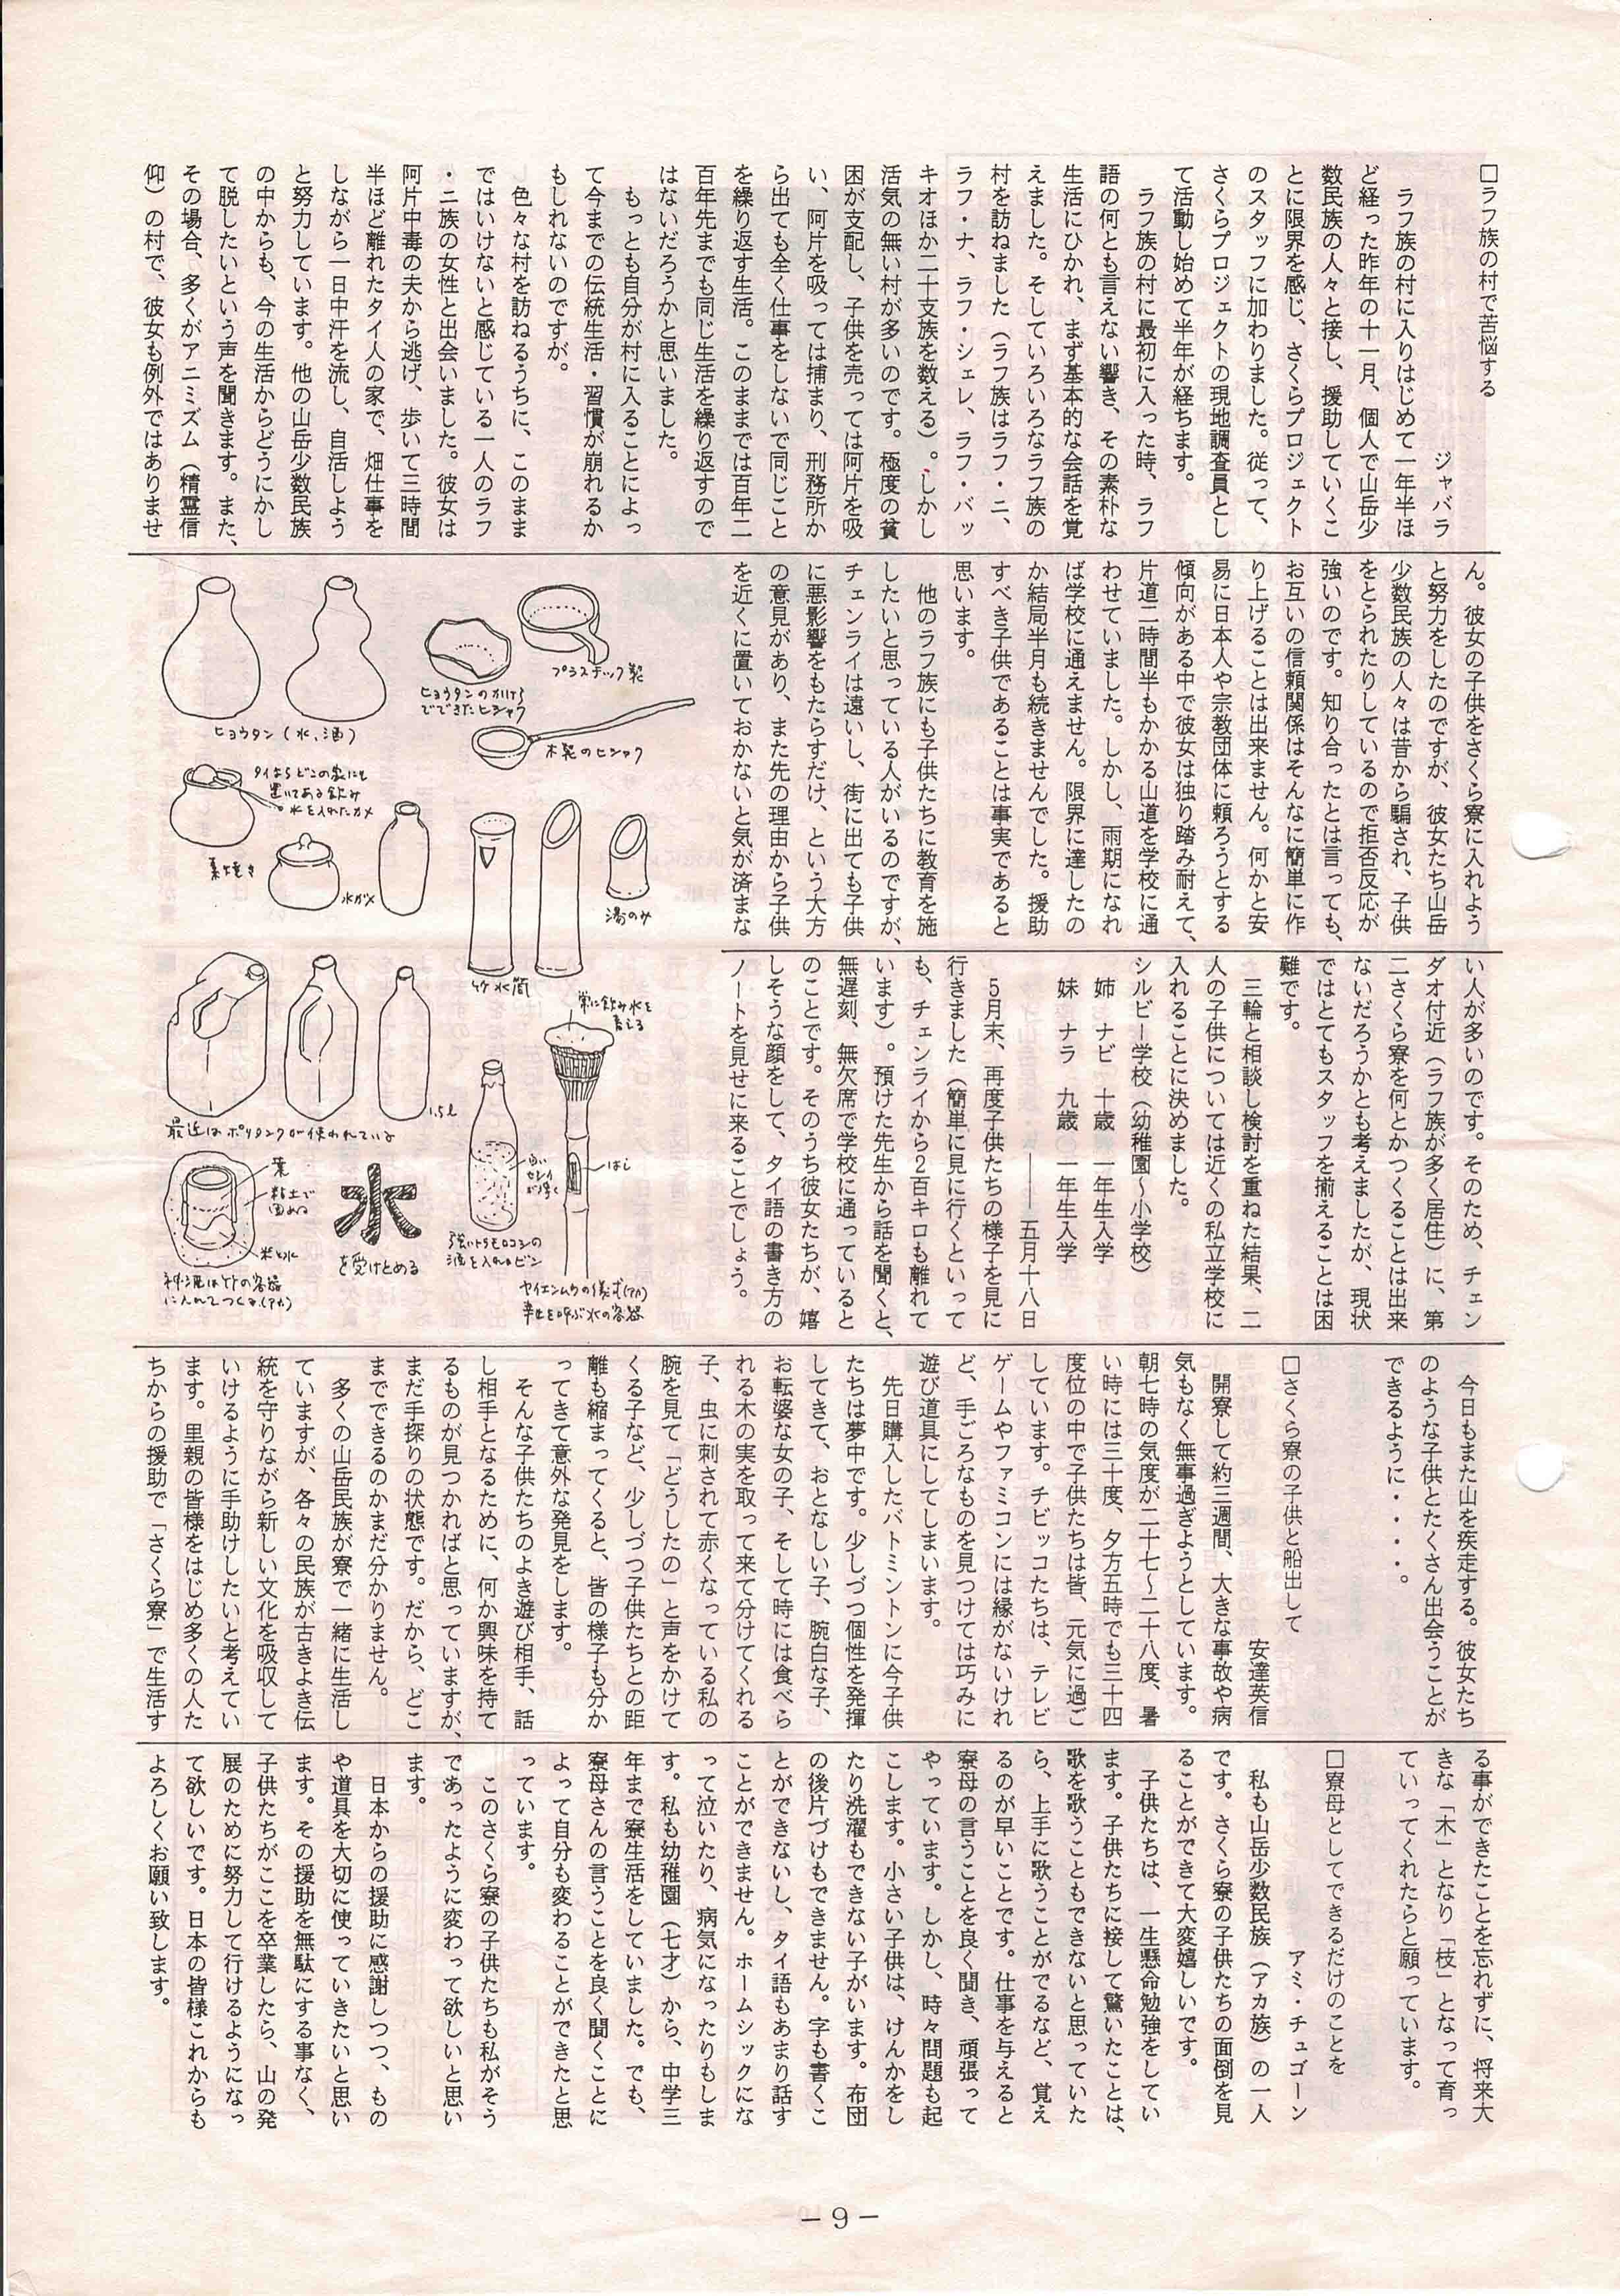 □ラフ族の村で苦悩する
ジャバラ
ラフ族の村に入りはじめて一年半ほ
ど経った昨年の十一月、個人で山岳少
数民族の人々と接し、援助していくこ
とに限界を感じ、さくらプロジェクト
のスタッフに加わりました。従って、
さくらプロジェクトの現地調査員とし
て活動し始めて半年が経ちます。
ラフ族の村に最初に入った時、ラフ
語の何とも言えない響き、その素朴な
生活にひかれ、まず基本的な会話を覚
えました。そしていろいろなラフ族の
村を訪ねました(ラフ族はラフ・ニ、
ラフ・ナ、ラフ・シェレ、ラフ・バッ
キオほか二十支族を数える)。しかし
活気の無い村が多いのです。極度の貧
困が支配し、子供を売っては阿片を吸
い、阿片を吸っては捕まり、刑務所か
ら出ても全く仕事をしないで同じこと
を繰り返す生活。このままでは百年二
百年先までも同じ生活を繰り返すので
はないだろうかと思いました。
もっとも自分が村に入ることによっ
て今までの伝統生活・習慣が崩れるか
もしれないのですが。
色々な村を訪ねるうちに、このまま
ではいけないと感じている一人のラフ
・ニ族の女性と出会いました。彼女は
阿片中毒の夫から逃げ、歩いて三時間
半ほど離れたタイ人の家で、畑仕事を
しながら一日中汗を流し、自活しよう
と努力しています。他の山岳少数民族
の中からも、今の生活からどうにかし
て脱したいという声を聞きます。また、
その場合、多くがアニミズム(精霊信
仰)の村で、彼女も例外ではありませ
ん。彼女の子供をさくら寮に入れよう
と努力をしたのですが、彼女たち山岳
少数民族の人々は昔から騙され、子供
をとられたりしているので拒否反応が
強いのです。知り合ったとは言っても、
お互いの信頼関係はそんなに簡単に作
り上げることは出来ません。何かと安
易に日本人や宗教団体に頼ろうとする
傾向がある中で彼女は独り踏み耐えて、
片道二時間半もかかる山道を学校に通
わせていました。しかし、雨期になれ
ば学校に通えません。限界に達したの
か結局半月も続きませんでした。援助
すべき子供であることは事実であると
思います。
他のラフ族にも子供たちに教育を施
したいと思っている人がいるのですが、
チェンライは遠いし、街に出ても子供
に悪影響をもたらすだけ、という大方
の意見があり、また先の理由から子供
を近くに置いておかないと気が済まな
い人が多いのです。そのため、チェン
ダオ付近(ラフ族が多く居住)に、第
二さくら寮を何とかつくることは出来
ないだろうかとも考えましたが、現状
ではとてもスタッフを揃えることは困
難です。
三輪と相談し検討を重ねた結果、二
人の子供については近くの私立学校に
入れることに決めました。
シルビー学校(幼稚園〜小学校)
姉 ナビ 十歳 一年生入学
妹 ナラ 九歳 一年生入学
――― 五月十八日
5月末、再度子供たちの様子を見に
行きました(簡単に見に行くといって
も、チェンライから2百キロも離れて
います)。預けた先生から話を聞くと、
無遅刻、無欠席で学校に通っていると
のことです。そのうち彼女たちが、嬉
しそうな顔をして、タイ語の書き方の
ノートを見せに来ることでしょう。
プラスチック製
ヒョウタンのかけら
でできたヒシャク
ヒョウタン(水、酒)
木製のヒシャク
タイならどこの家にも
置いてある飲み
水を入れたカメ
素焼き
水ガメ
湯のみ
竹水筒
常に飲み水を
蓄える
1.5ℓ
最近はポリタンクが使われている
葉
粘土で
固める
米と水
神酒は竹の容器
に入れてつくる(アカ)
水
を受けとめる
強いトウモロコシの
酒を入れるビン
はし
ヤイエンムウの儀式(アカ)
幸せを呼ぶ水の容器
今日もまた山を疾走する。彼女たち
のような子供とたくさん出会うことが
できるように・・・・。
□さくら寮の子供と船出して
安達英信
開寮して約三週間、大きな事故や病
気もなく無事過ぎようとしています。
朝七時の気度が二十七〜二十八度、暑
い時には三十度、夕方五時でも三十四
度位の中で子供たちは皆、元気に過ご
しています。チビッコたちは、テレビ
ゲームやファミコンには縁がないけれ
ど、手ごろなものを見つけては巧みに
遊び道具にしてしまいます。
先日購入したバトミントンに今子供
たちは夢中です。少しづつ個性を発揮
してきて、おとなしい子、腕白な子、
お転婆な女の子、そして時には食べら
れる木の実を取って来て分けてくれる
子、虫に刺されて赤くなっている私の
腕を見て「どうしたの」と声をかけて
くる子など、少しづつ子供たちとの距
離も縮まってくると、皆の様子も分か
ってきて意外な発見をします。
そんな子供たちのよき遊び相手、話
し相手となるために、何か興味を持て
るものが見つかればと思っていますが、
まだ手探りの状態です。だから、どこ
までできるのかまだ分かりません。
多くの山岳民族が寮で一緒に生活し
ていますが、各々の民族が古きよき伝
統を守りながら新しい文化を吸収して
いけるように手助けしたいと考えてい
ます。里親の皆様をはじめ多くの人た
ちからの援助で「さくら寮」で生活す
る事ができたことを忘れずに、将来大
きな「木」となり「枝」となって育っ
ていってくれたらと願っています。
□寮母としてできるだけのことを
アミ・チュゴーン
私も山岳少数民族(アカ族)の一人
です。さくら寮の子供たちの面倒を見
ることができて大変嬉しいです。
子供たちは、一生懸命勉強をしてい
ます。子供たちに接して驚いたことは、
歌を歌うこともできないと思っていた
ら、上手に歌うことがでるなど、覚え
るのが早いことです。仕事を与えると
寮母の言うことを良く聞き、頑張って
やっています。しかし、時々問題も起
こします。小さい子供は、けんかをし
たり洗濯もできない子がいます。布団
の後片づけもできません。字も書くこ
とができないし、タイ語もあまり話す
ことができません。ホームシックにな
って泣いたり、病気になったりもしま
す。私も幼稚園(七才)から、中学三
年まで寮生活をしていました。でも、
寮母さんの言うことを良く聞くことに
よって自分も変わることができたと思
っています。
このさくら寮の子供たちも私がそう
であったように変わって欲しいと思い
ます。
日本からの援助に感謝しつつ、もの
や道具を大切に使っていきたいと思い
ます。その援助を無駄にする事なく、
子供たちがここを卒業したら、山の発
展のために努力して行けるようになっ
て欲しいです。日本の皆様これからも
よろしくお願い致します。
－9－